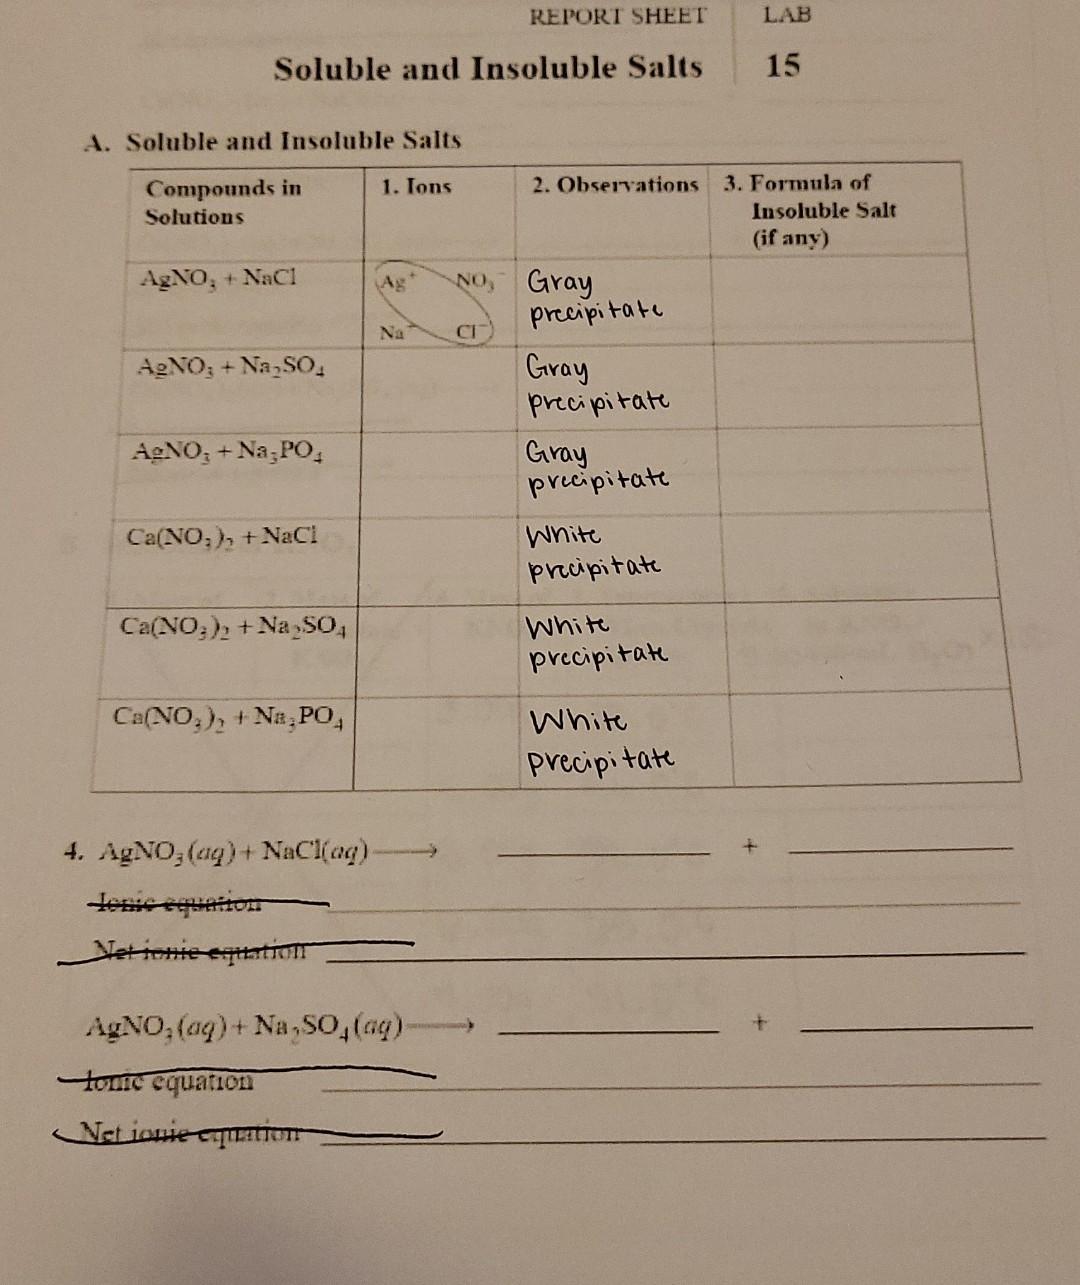 REPORT SHEET LAB
Soluble and Insoluble Salts 15
A. Soluble and Insoluble Salts
Compounds in Solutions
1. Ions
2. Observations
3. Formula of Insoluble Salt (if any)
AgNO₃ + NaCl
Ag⁺ NO₃⁻
Na⁺ Cl⁻
Gray
precipitate
AgNO₃ + Na₂SO₄
Gray
precipitate
AgNO₃ + Na₃PO₄
Gray
precipitate
Ca(NO₃)₂ + NaCl
White
precipitate
Ca(NO₃)₂ + Na₂SO₄
White
precipitate
Ca(NO₃)₂ + Na₃PO₄
White
precipitate
4. AgNO₃(aq) + NaCl(aq) ⟶ +
Ionic equation
Net ionic equation
AgNO₃(aq) + Na₂SO₄(aq) ⟶ +
Ionic equation
Net ionic equation